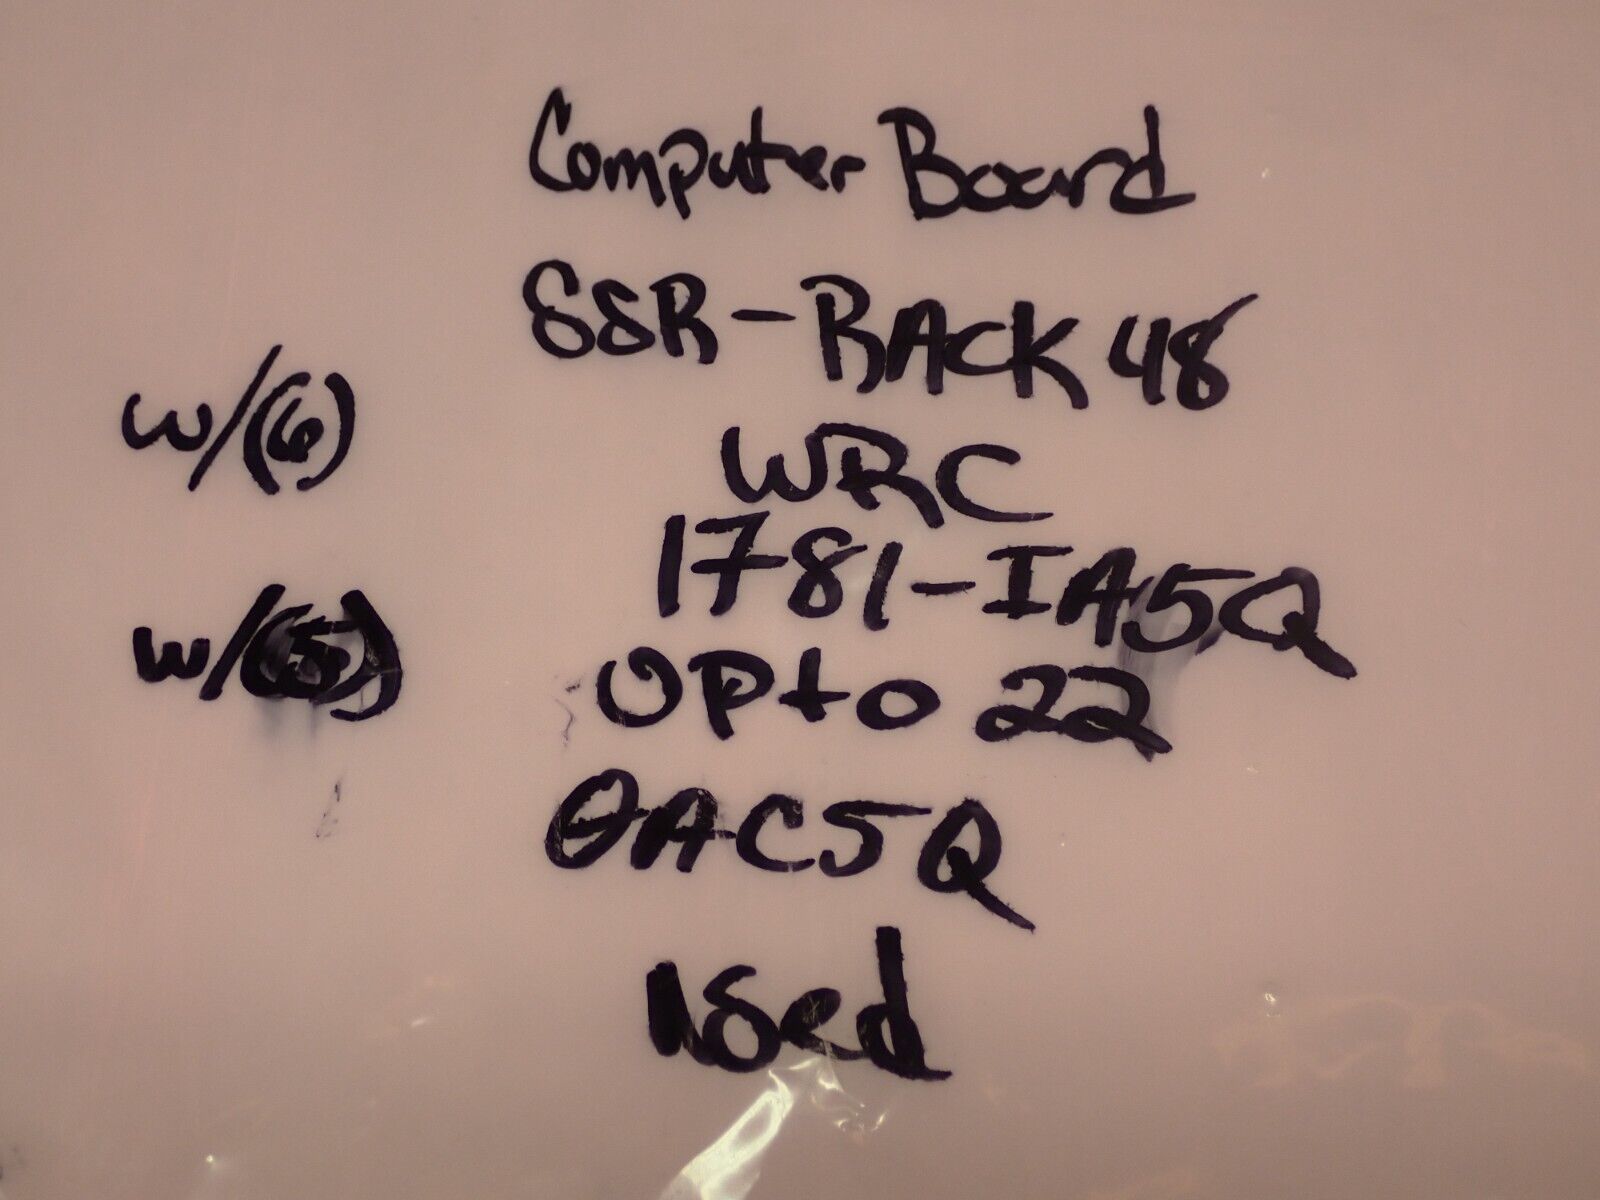 Computer Board
SSR-RACK 48
w/(6) WRC
1781-IA5Q
w/(5) OPto 22
OAC5Q
used